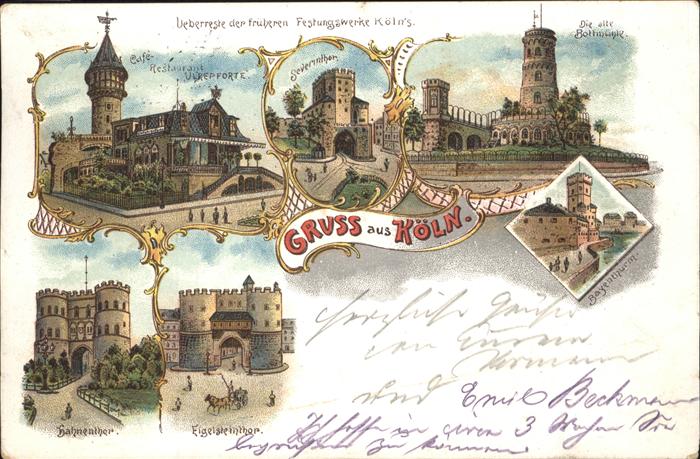 Ueberreste der früheren Festungswerke Köln's.
Café-
Restaurant
ULREPFORTE.
Severinthor.
Die alte
Bottmühle.
GRUSS AUS KÖLN.
Bayenthurm.
Hahnenthor.
Eigelsteinthor.
Herzliche Grüße
von Eurem
Hermann
und Emil Beckmann
Ich hoffe in 3 Wochen Sie
begrüßen zu können